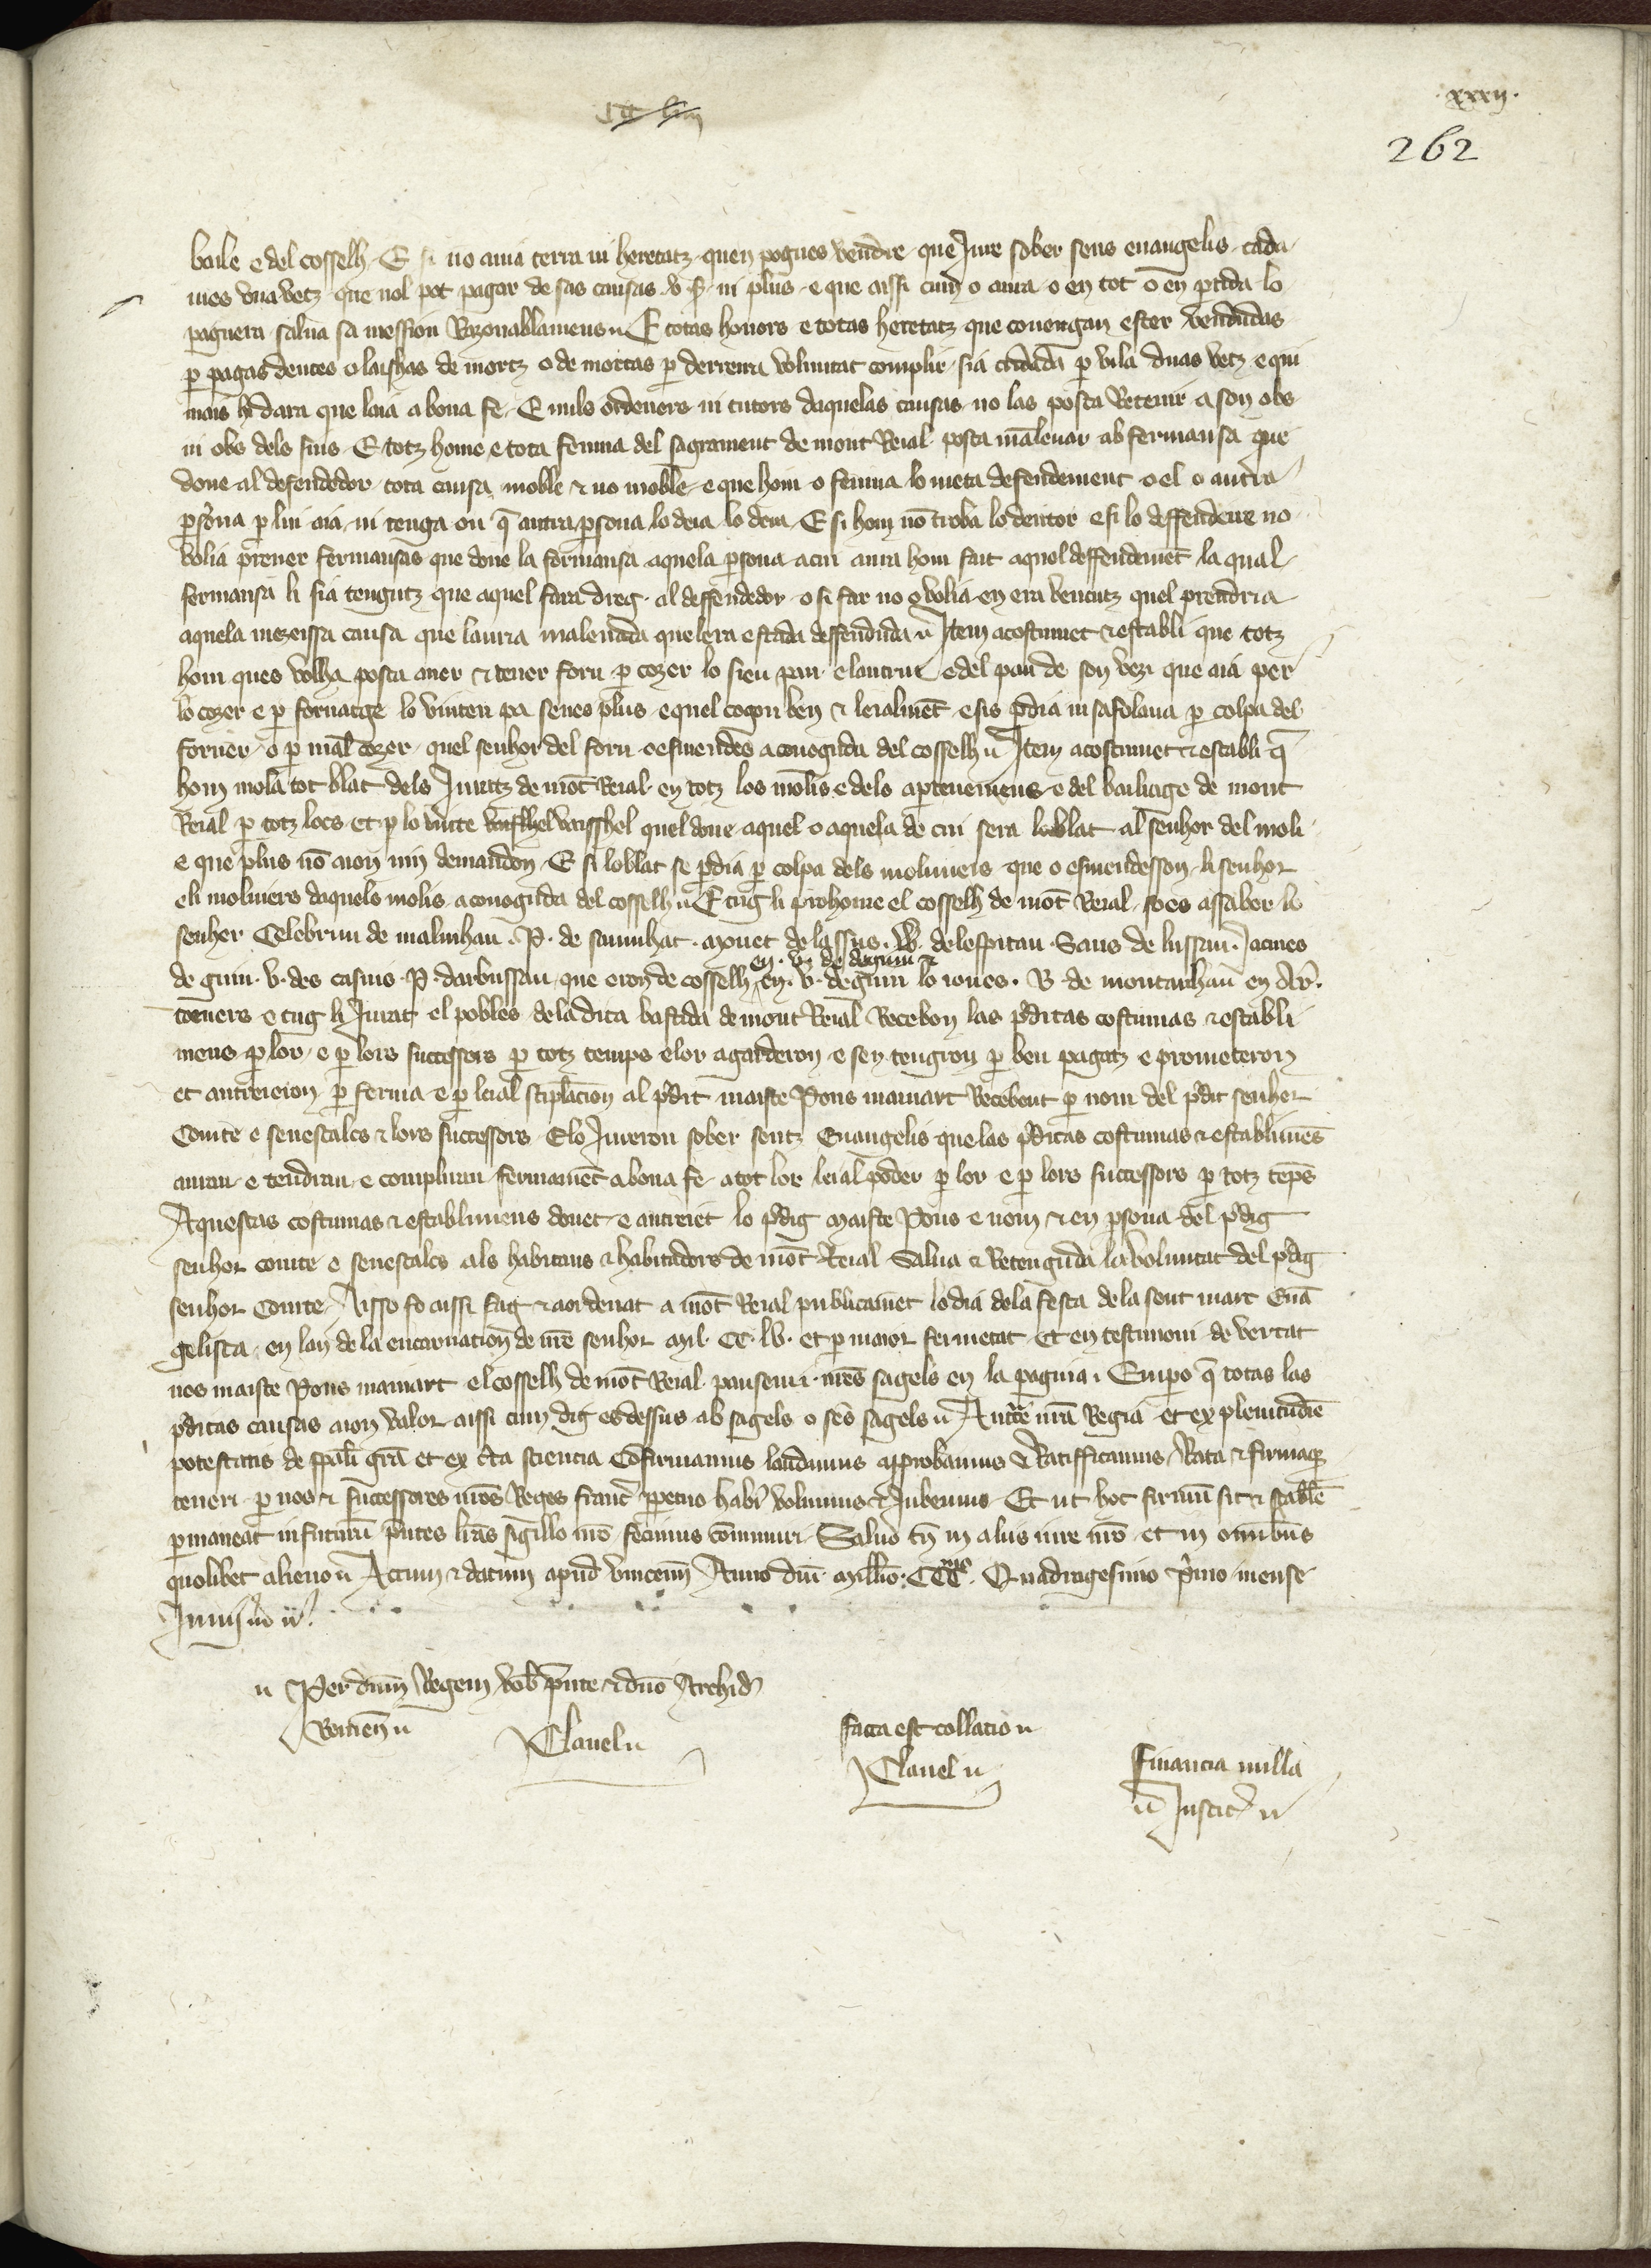 .xxxii.
262
baile e del cosselh. E si no auia terra ni heretatz quen pogues vendre que Jure sober sens euangelis. cada
mes vna vetz que nol pot pagar de sas causas .v. s. ni plus. e que aissi cum o aura o en tot o en ptida lo
paguera salua sa mession Razonablamens. E totas honors e totas heretatz que couengan ester vendudas
p pagar deutes o laishas de mortz o de mortas p derreira voluntat complir sia cridada p vila duas vetz e qui
mais hi dara que laia a bona fe. E nulo ordeners ni tutors daquelas causas no las posca Retenir a son obs
ni obs dels sins. E totz home e tota femna del sagrament de mont Reial posca maleuar ab fermansa que
done al defendedor tota causa moble & no moble e que hom o femna lo meta defendement o el o autra
psona p lui aia ni tenga on q autra psona lo deia lo deia. E si hom no troba lo deutor e si lo deffendere no
volia prener fermansas que done la fermansa aquela psona a cui aura hom fait aquel deffendemet la qual
fermansa li sia tengutz que aquel fara dreg al deffendedor o si far no o volia en era vencutz quel prendria
aquela mezeissa causa que laura maleuada quelera estada deffenduda. Item acostumet & establi que totz
hom ques volha posca auer & tener forn p cozer lo sieu pan e lautrui e del pan de son vezi que aia per
lo cozer e p fornatge lo vinten pa senes plus e quel cogon ben & leialmet e sis pdia ni safolaua p colpa del
forner o p mal cozer quel senhor del forn o esmendes a conoguda del cosselh. Item acostumet & establi q
hom mola tot blat dels Juratz de mot Reial en totz los molis e dels aptenemens e del bailiage de mont
Reial p totz locs et p lo vinte vaisshel quel done aquel o aquela de cui sera lo blat al senhor del moli
e que plus no aion nin demandon. E si lo blat se pdia p colpa dels moliniers que o esmendesson li senhor
eli moliniers daquels molis a conoguda del cosselh. E tug li prohome el cosselh de mot Reial so es assaber lo
senher Celebrun de malinhan. P. de saunhat. monet de lassus. W. delespitau. Sans de lussan. Jacmes
de guin. v. des casuis. P. darbussan que eron de cosselh en. v. de deguin & en. v. deguin lo ioues. B. de montanhan en Ar.
torners e tug li Jurat el pobles dela dita bastida de mont Reial Recebon las pditas costumas & establi
mens p lor e p lors successors p totz temps e lor agarderon e sen tengron p ben pagatz e prometeron
et autreieron p ferma e p leial stiplation al pdit maiste Pons mainart Recebent p nom del pdit senher
Comte e senescalcs & lors successors. Elo Jureron sober sentz Euangelis que las pditas costumas & establimes
auran e tendran e compliran fermamet a bona fe a tot lor leial poder p lor e p lors successors p totz teps
Aquestas costumas & establimens donet e autreiet lo pdig maiste Pons e nom & en psona del pdig
senhor comte e senescalcs als habitans & habitadors de mot Reial Salua & Retenguda la voluntat del pdig
senhor Comte. Aisso fo aissi fag & aordenat a mot Reial publicamet lo dia dela festa dela sent marc Eua
gelista en lan de la encarnation de nre senhor Mil. CC. lv. et p maior fermetat et en testimoni de vertat
nos maiste Pons mainart el cosselh de mot Reial pausem nres sagels en la pagina. Empo q totas las
pditas causas aion valor aissi cum dig es dessus ab sagels o ses sagels. Auctte nra Regia et ex plenitudie
potestatis de spali gra et ex cta sciencia Cofirmamus laudamus approbamus & Ratifficamus Rata & firmaq
teneri p nos & successores nros Reges franc ppetuo habi volumus & Jubemus. Et ut hoc firmu sit & stable
pmaneat in futuru pntes lras sigillo nro fecimus comuniri. Saluo tn in aliis iure nro et in omibus
quolibet alieno. Actum & datum apud vincenn Anno dni millio. CCCmo. Quadragesimo pmo mense
Junii
Per dnm Regem vob pnte & dno Archid
Clauel
facta est collatio
Clauel
financia nulla
Justic